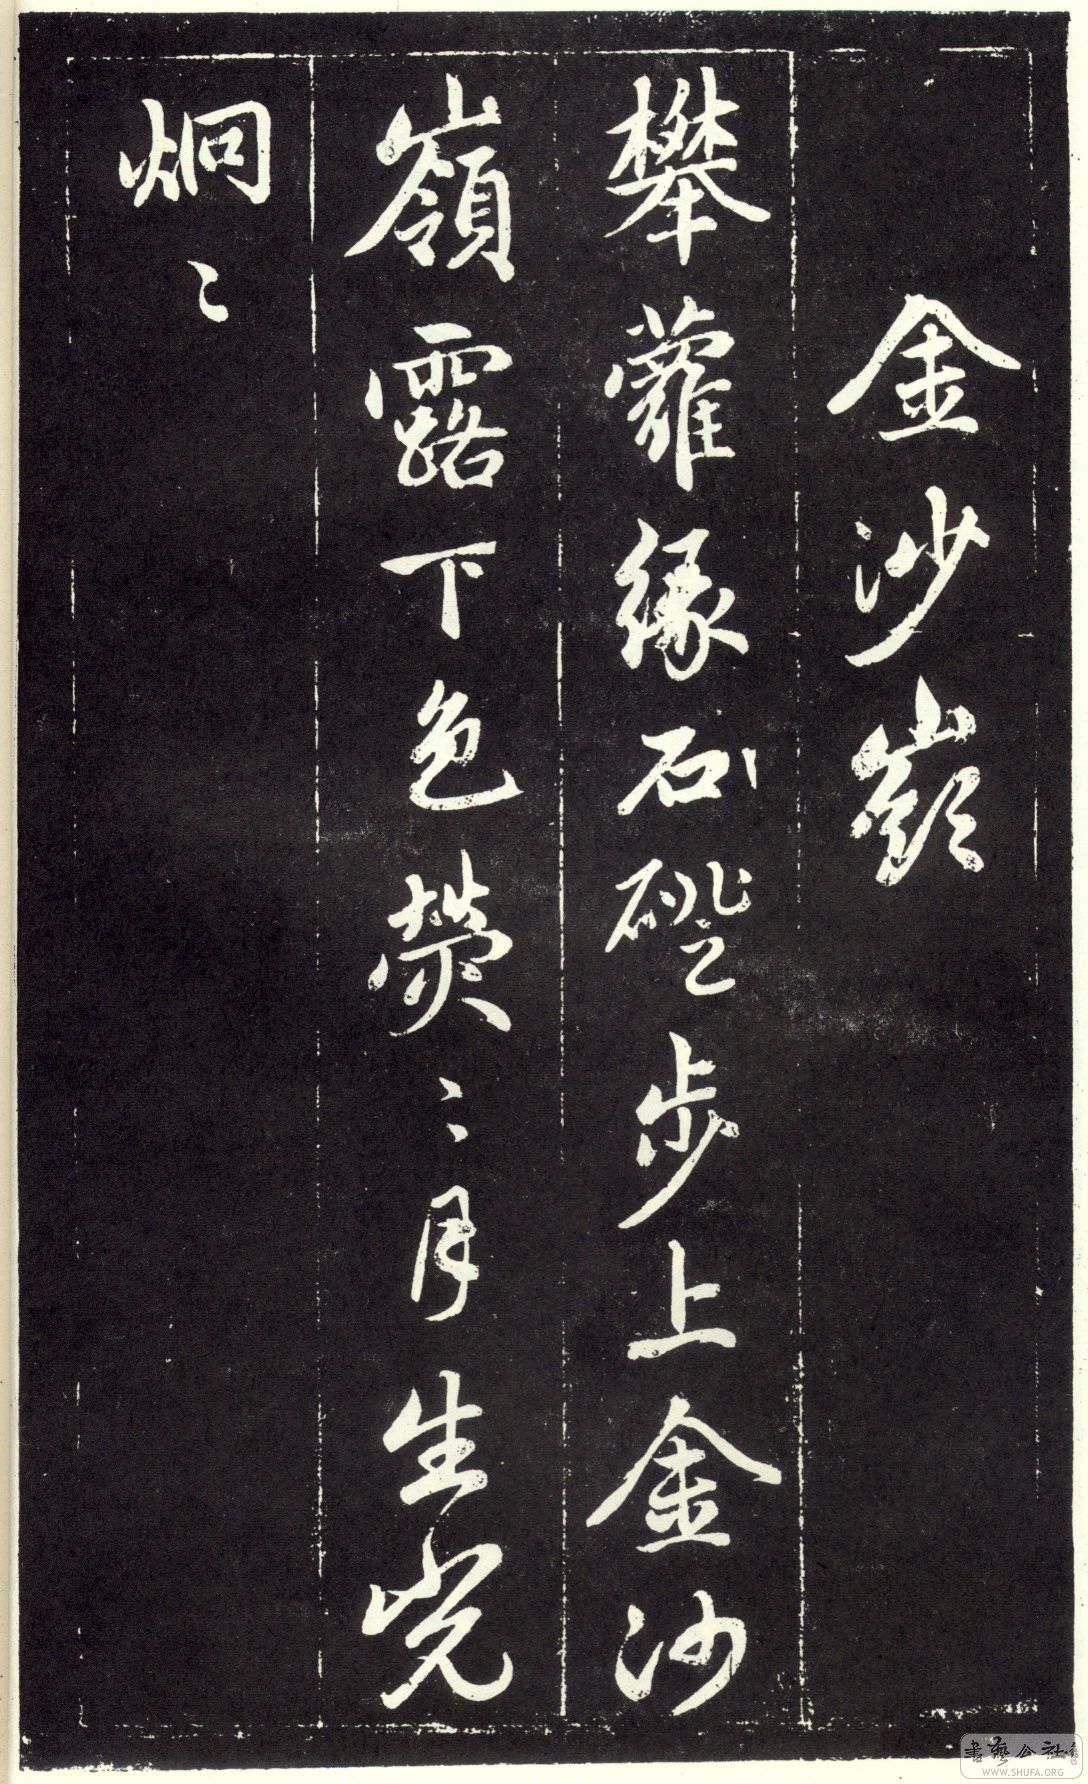 金沙嶺
攀蘿緣石磴步上金沙
嶺露下色熒〻月生光
炯〻
書藝公社
WWW.SHUFA.ORG